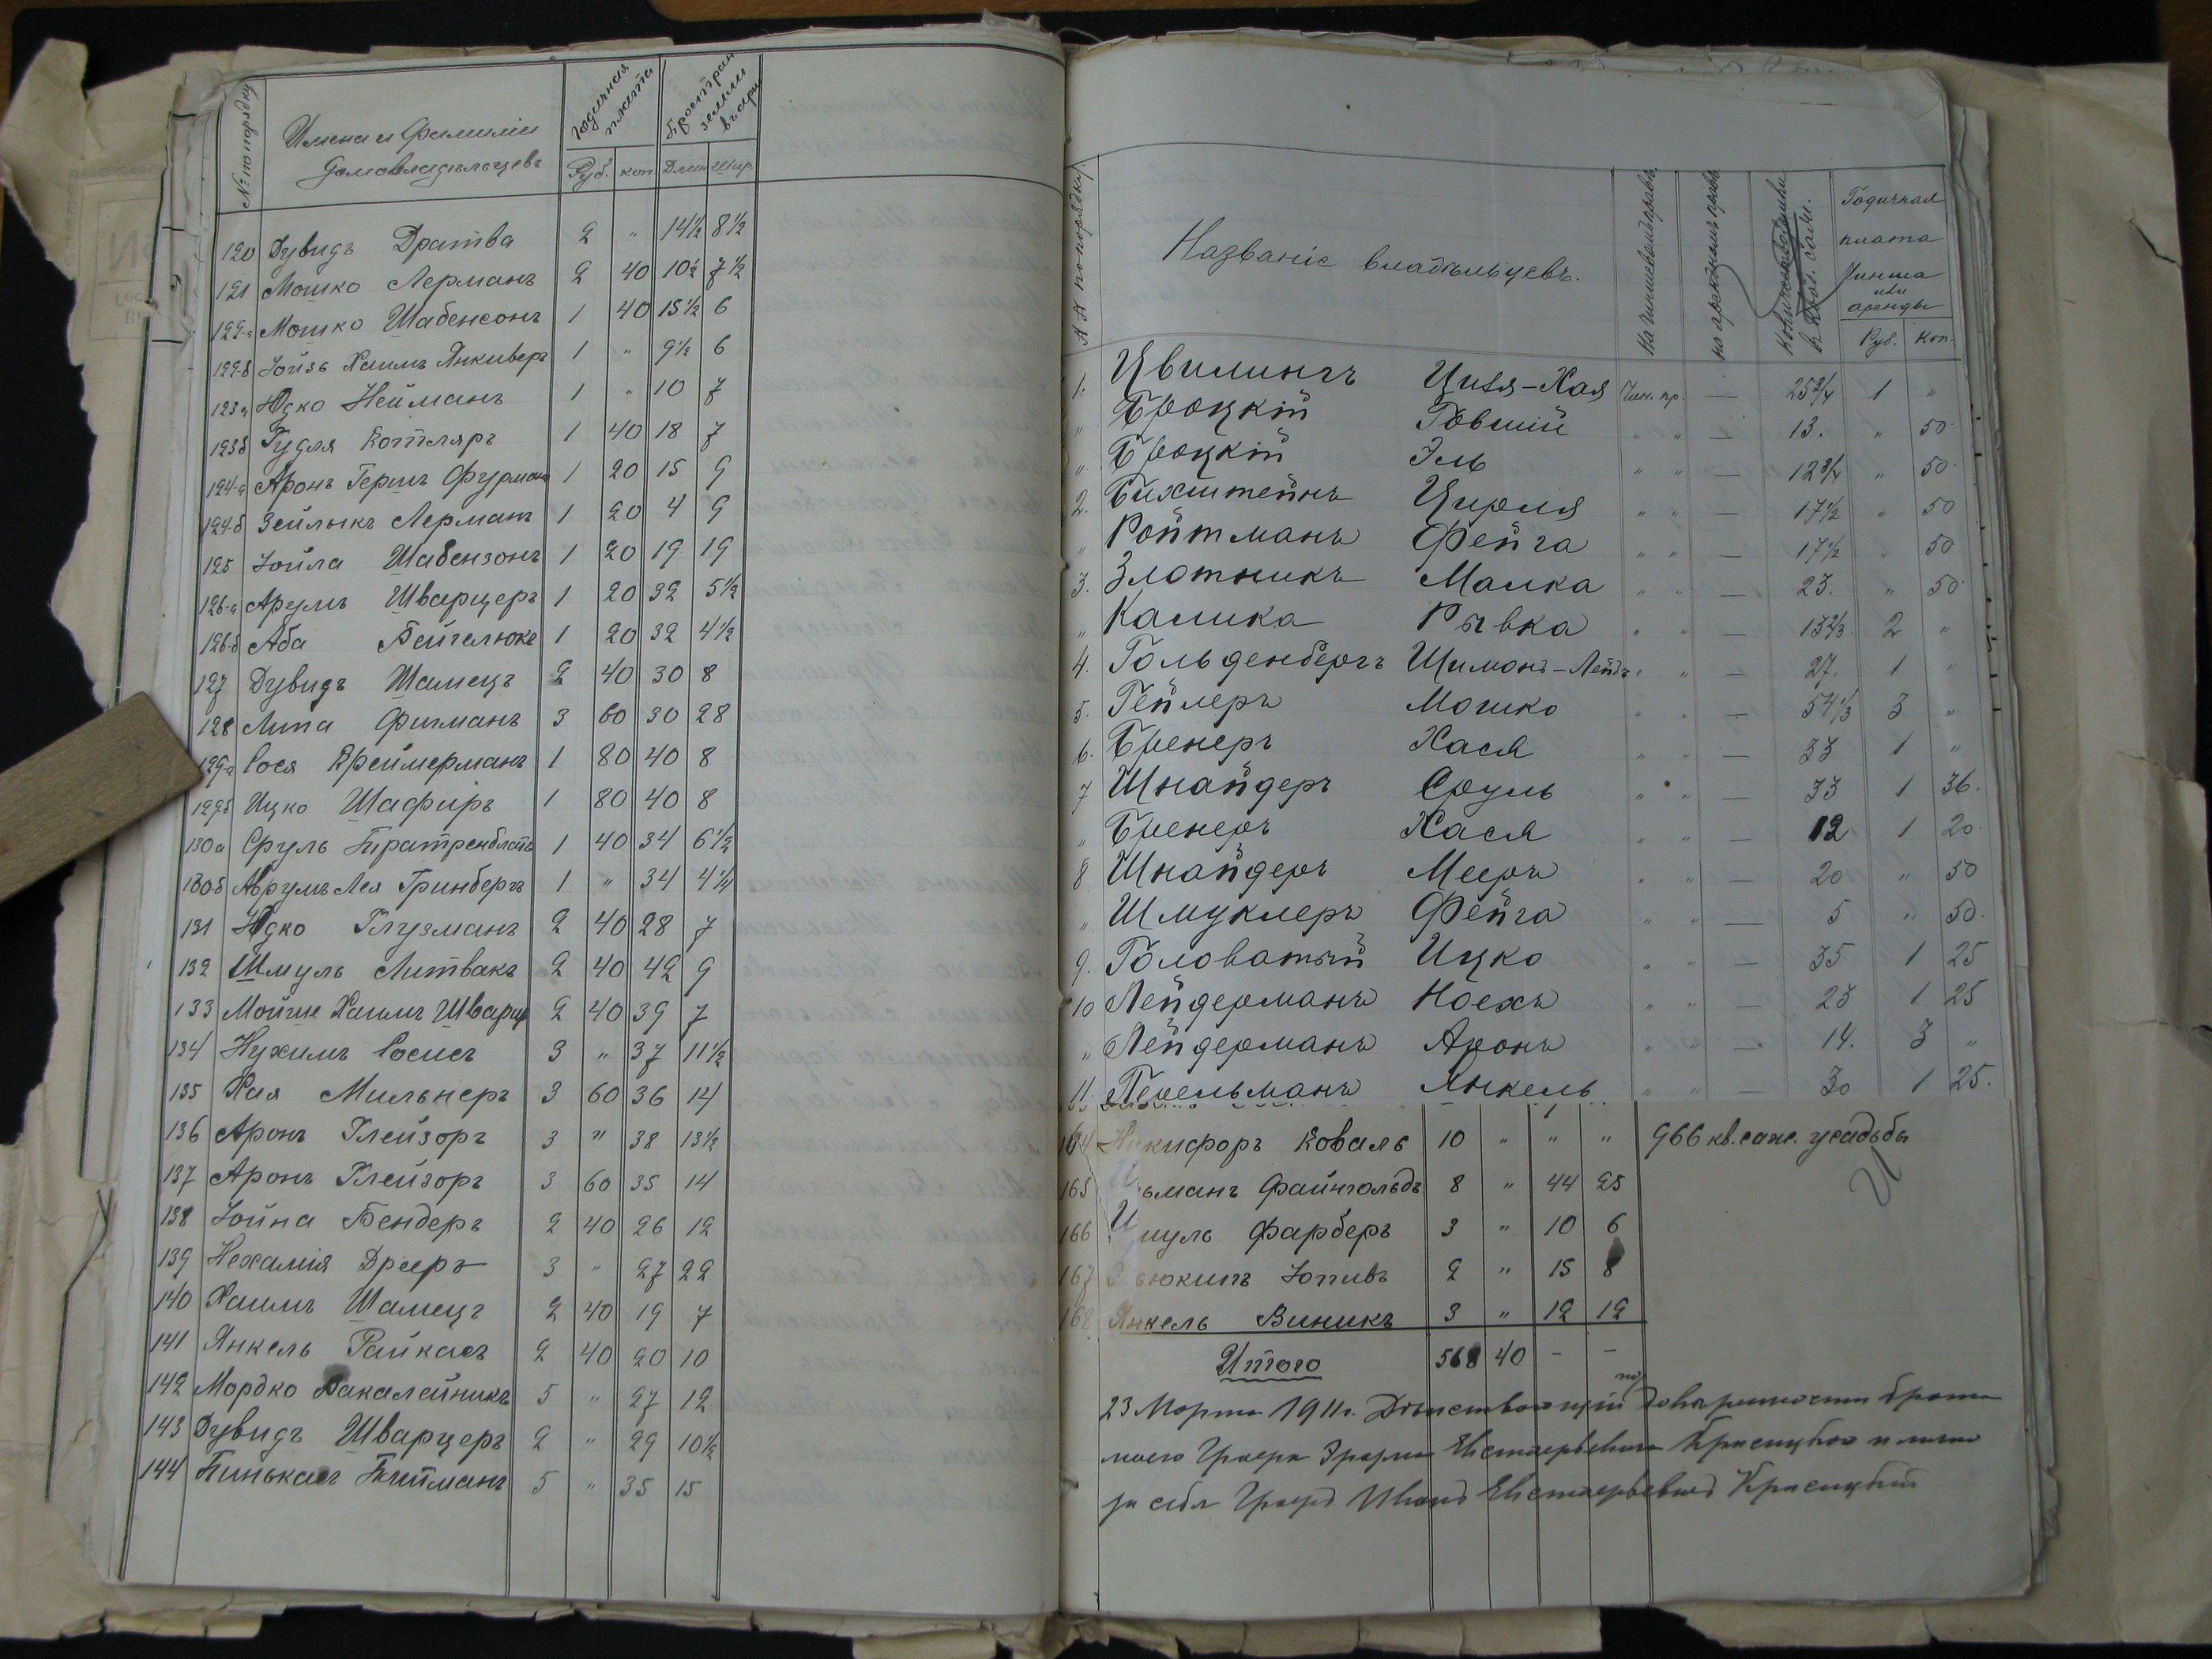 № по порядку
Имена и Фамилии
Домовладѣльцевъ
Годичная
плата
Простран
земли
въ арш
Руб. коп Длин Шир.
120 Дувидъ Дратва 2 " 14½ 8½
121 Мошко Лерманъ 2 40 10½ 7½
122-а Мошко Шабенсонъ 1 40 15½ 6
122-б Хаимъ 1 " 9½ 6
123а Юдко Нейманъ 1 " 10 7
123б Гудля Котляръ 1 40 18 7
124-а Аронъ Гершъ Фурманъ 1 20 15 9
124-б Зейлыкъ Лерманъ 1 20 4 9
125 Іойла Шабензонъ 1 20 19 19
126-а Арумъ Шварцеръ 1 20 32 5½
126-б Аба 1 20 32 4½
127 Дувидъ Шамецъ 2 40 30 8
128 Липа Фигманъ 3 60 30 28
129-а Сося Креймерманъ 1 80 40 8
129б Ицко Шафиръ 1 80 40 8
130а Сруль 1 40 34 6½
130б Аврумъ Лея Гринбергъ 1 " 34 4¼
131 Юдко Глузманъ 2 40 28 7
132 Шмуль Литвакъ 2 40 42 9
133 Мойше Хаимъ Шварц 2 40 39 7
134 Нухимъ 3 " 37 11½
135 Хая Мильнеръ 3 60 36 14
136 Аронъ Глейзоръ 3 " 38 13½
137 Аронъ Глейзоръ 3 60 35 14
138 Іойна Бендеръ 2 40 26 12
139 Нехамія Дрееръ 3 " 27 22
140 Хаимъ Шамецъ 2 40 19 7
141 Янкель Райхасъ 2 40 20 10
142 Мордко Бакалейникъ 5 " 27 12
143 Дувидъ Шварцеръ 2 " 29 10½
144 Пинькасъ 5 " 35 15
№ № по порядку
Названіе владѣльцевъ.
На чиншевомъ правѣ
на арендномъ правѣ
Количество земли
в квад. саж.
Годичная
плата
Чинша
или
аренды
Руб. Коп.
1. Цвилингъ Циля-Хая Чин. пр. — 25¾ 1 "
" Броцкій Говшій " " — 13. " 50
" Броцкій Эль " " — 12¾ " 50
2. Бихштейнъ Цирля " " — 17½ " 50
" Ройтманъ Фейга " " — 17½ " 50
3. Злотникъ Малка " " — 23. " 50
" Калика Рывка " " — 13⅔ 2 "
4. Гольденбергъ Шимонъ-Лейбъ " " — 27. 1 "
5. Гейлеръ Мошко " " — 54⅓ 3 "
6. Бренеръ Хася " " — 33 1 "
7 Шнайдеръ Сруль " " — 33 1 36.
" Бренеръ Хася " " — 12 1 20
8 Шнайдеръ Мееръ " " — 20 " 50
" Шмуклеръ Фейга " " — 5 " 50.
9. Головатый Ицко " " — 35 1 25
10 Лейдерманъ Ноехъ " " — 23 1 25
" Лейдерманъ Аронъ " " — 14. 3 "
11. Перельманъ Янкель " " — 30 1 25.
164 Никифоръ Коваль 10 " " " 966 кв. саж. усадьбы
165 Файнгольдъ 8 " 44 25
166 Фарберъ 3 " 10 6
167 2 " 15 8
168 Янкель Виникъ 3 " 12 12
Итого 568 40 – –
23 Марта 1911 г. Дѣйствующій по довѣренности брата
моего Графа Эразма Евстафьевича Красицкаго и лично
за себя Графъ Иванъ Евстафьевичъ Красицкій